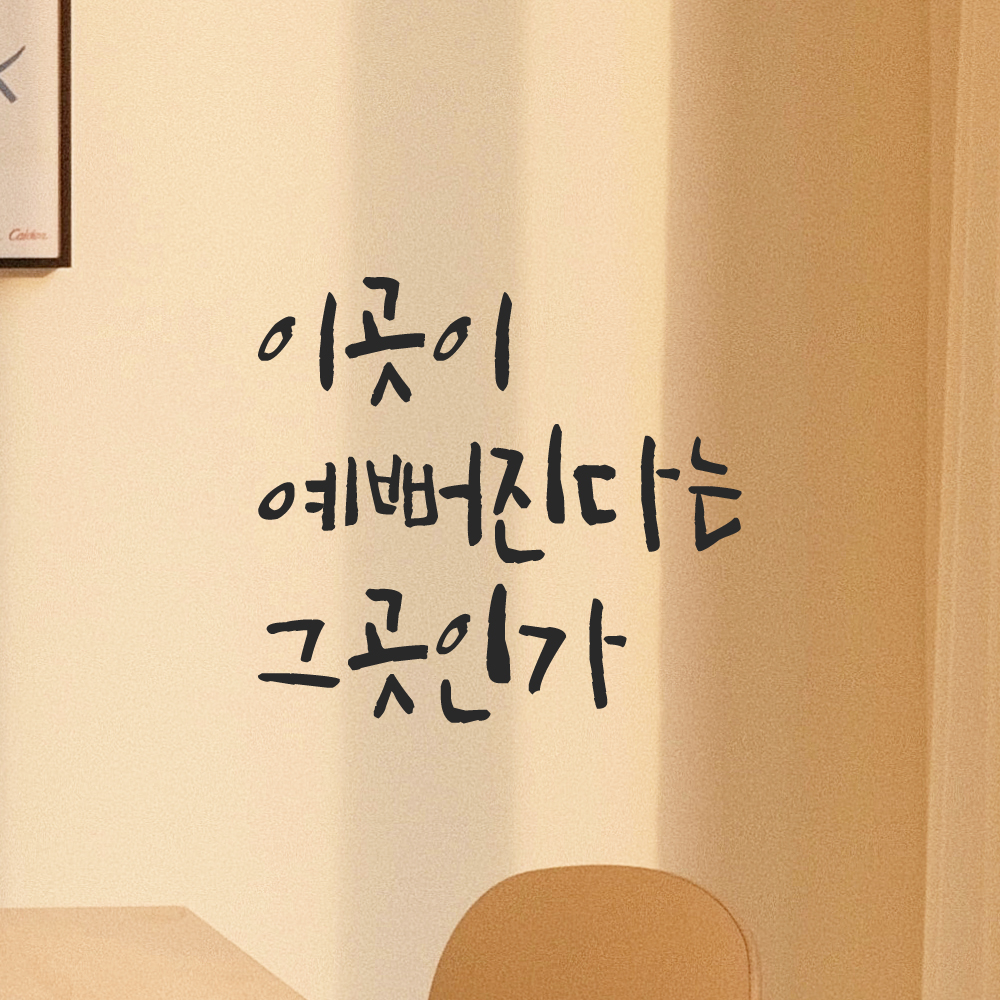 이곳이
예뻐진다는
그곳인가
Calder